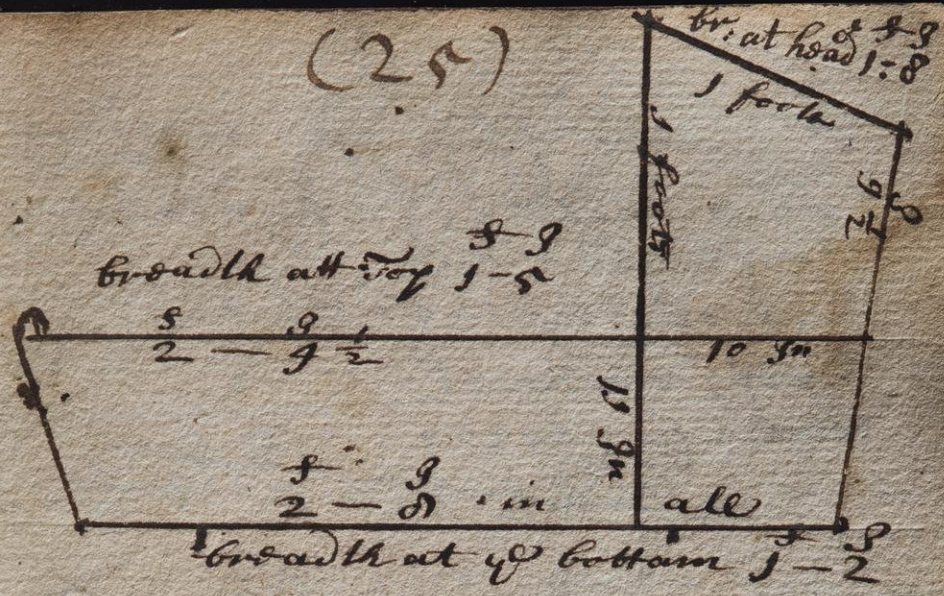 (25)
br: at head 1:8
1 foote
1 foote
9 1/2
breadth att Top 1-5
2 — 4 1/2
10 In
11 In
2 — 8 in all
breadth at ye bottam 1-2